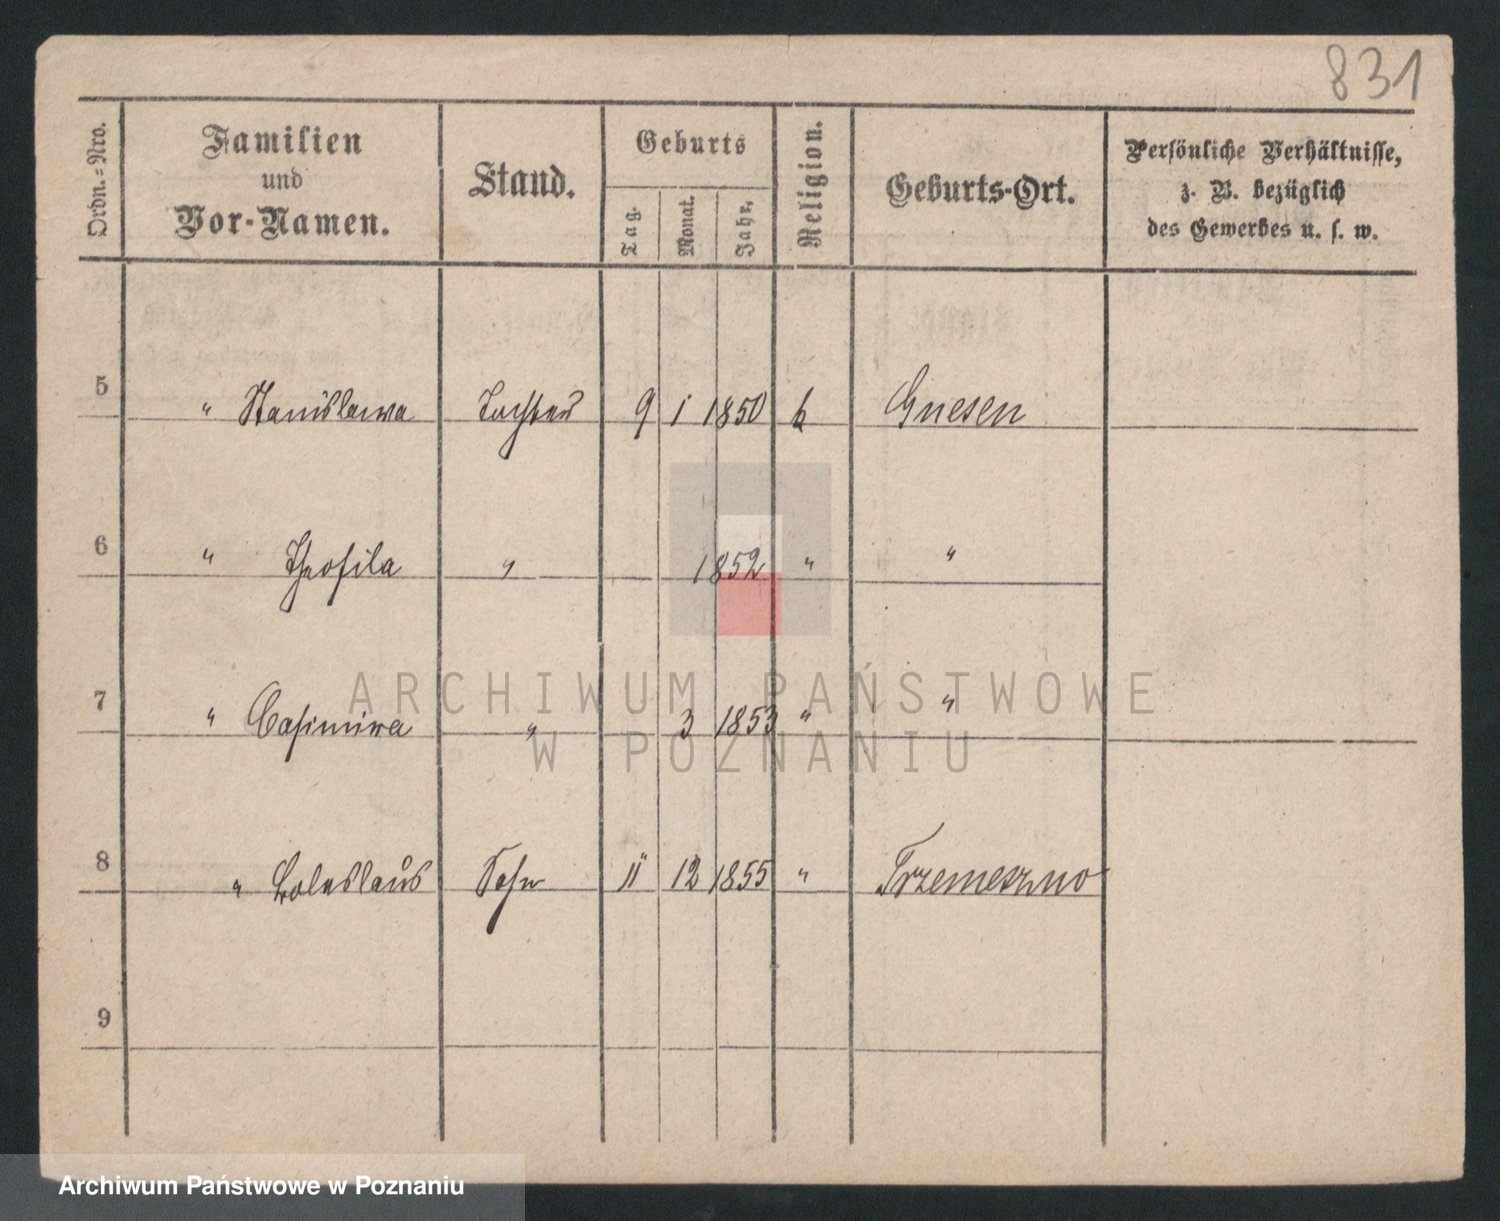 831
Ordn.=Nro.
Familien
und
Vor-Namen.
Stand.
Geburts
Tag.
Monat.
Jahr.
Religion.
Geburts-Ort.
Persönliche Verhältnisse,
z. B. bezüglich
des Gewerbes u. s. w.
5 " Stanislawa Tochter 9 1 1850 k Gnesen
6 " Theofila " 1852 " "
7 " Casimira " 3 1853 " "
8 " Boleslaus Sohn 11 12 1855 " Trzemeszno
9
ARCHIWUM PAŃSTWOWE
W POZNANIU
Archiwum Państwowe w Poznaniu